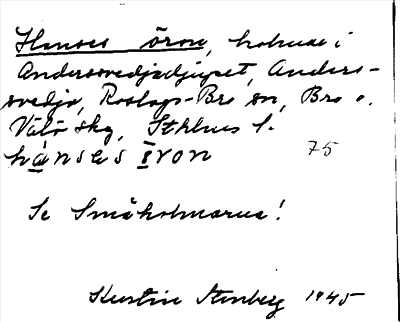 Hanses öron, holmar i
Andersvedjedjupet, Anders-
vedja, Roslags-Bro sn, Bro o.
Vätö skg, Sthlms l.
hánses ǫ̈ron 75
Se Småholmarna!
Kerstin Stenberg 1945